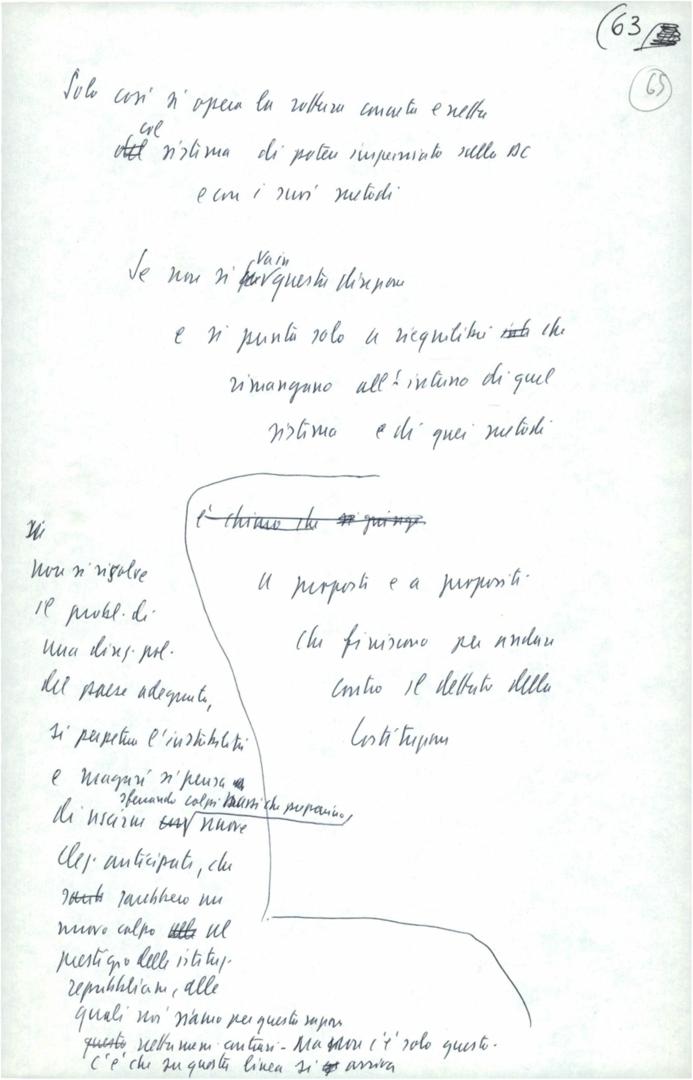 (63
65
Solo così si opera la rottura concreta e netta
col
del sistema di potere imperniato sulla DC
e con i suoi metodi
Se non si va in questa direzione
e si punta solo a riequilibri che
rimangano all'interno di quel
sistema e di quei metodi
è chiaro che si giunge
non si risolve
il probl. di
una direz. pol.
del paese adeguata,
si perpetua l'instabilità
e magari si pensa
sferrando colpi bassi che preparino,
di uscirne nuove
elez. anticipate, che
sarebbero un
nuovo colpo al
prestigio delle istituz.
repubblicane, alle
quali noi siamo per questa ragione
questo nettamente contrari - Ma non c'è solo questo.
C'è che su questa linea si arriva
a proposte e a propositi
che finiscono per andare
contro il dettato della
Costituzione